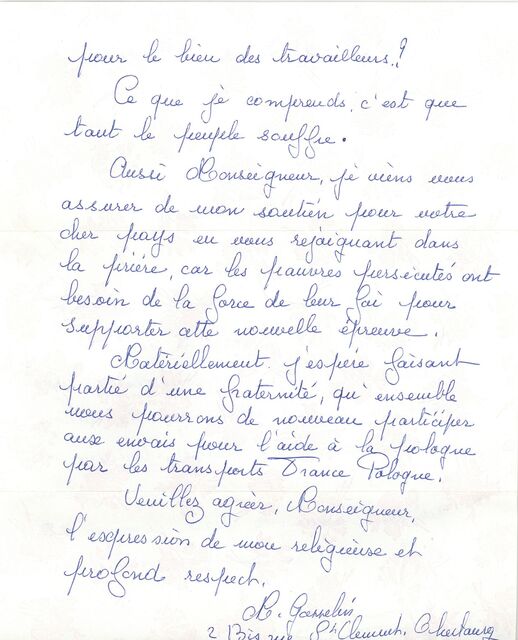 pour le bien des travailleurs.?
Ce que je comprends, c'est que
tout le peuple souffre.
Aussi Monseigneur, je viens vous
assurer de mon soutien pour votre
cher pays en vous rejoignant dans
la prière, car les pauvres persécutés ont
besoin de la force de leur foi pour
supporter cette nouvelle épreuve.
Matériellement j'espère faisant
partie d'une fraternité, qu'ensemble
nous pourrons de nouveau participer
aux envois pour l'aide à la pologne
par les transports France Pologne.
Veuillez agréer, Monseigneur,
l'expression de mon religieuse et
profond respect.
M. Gosselin
2 Bis rue St Clement,